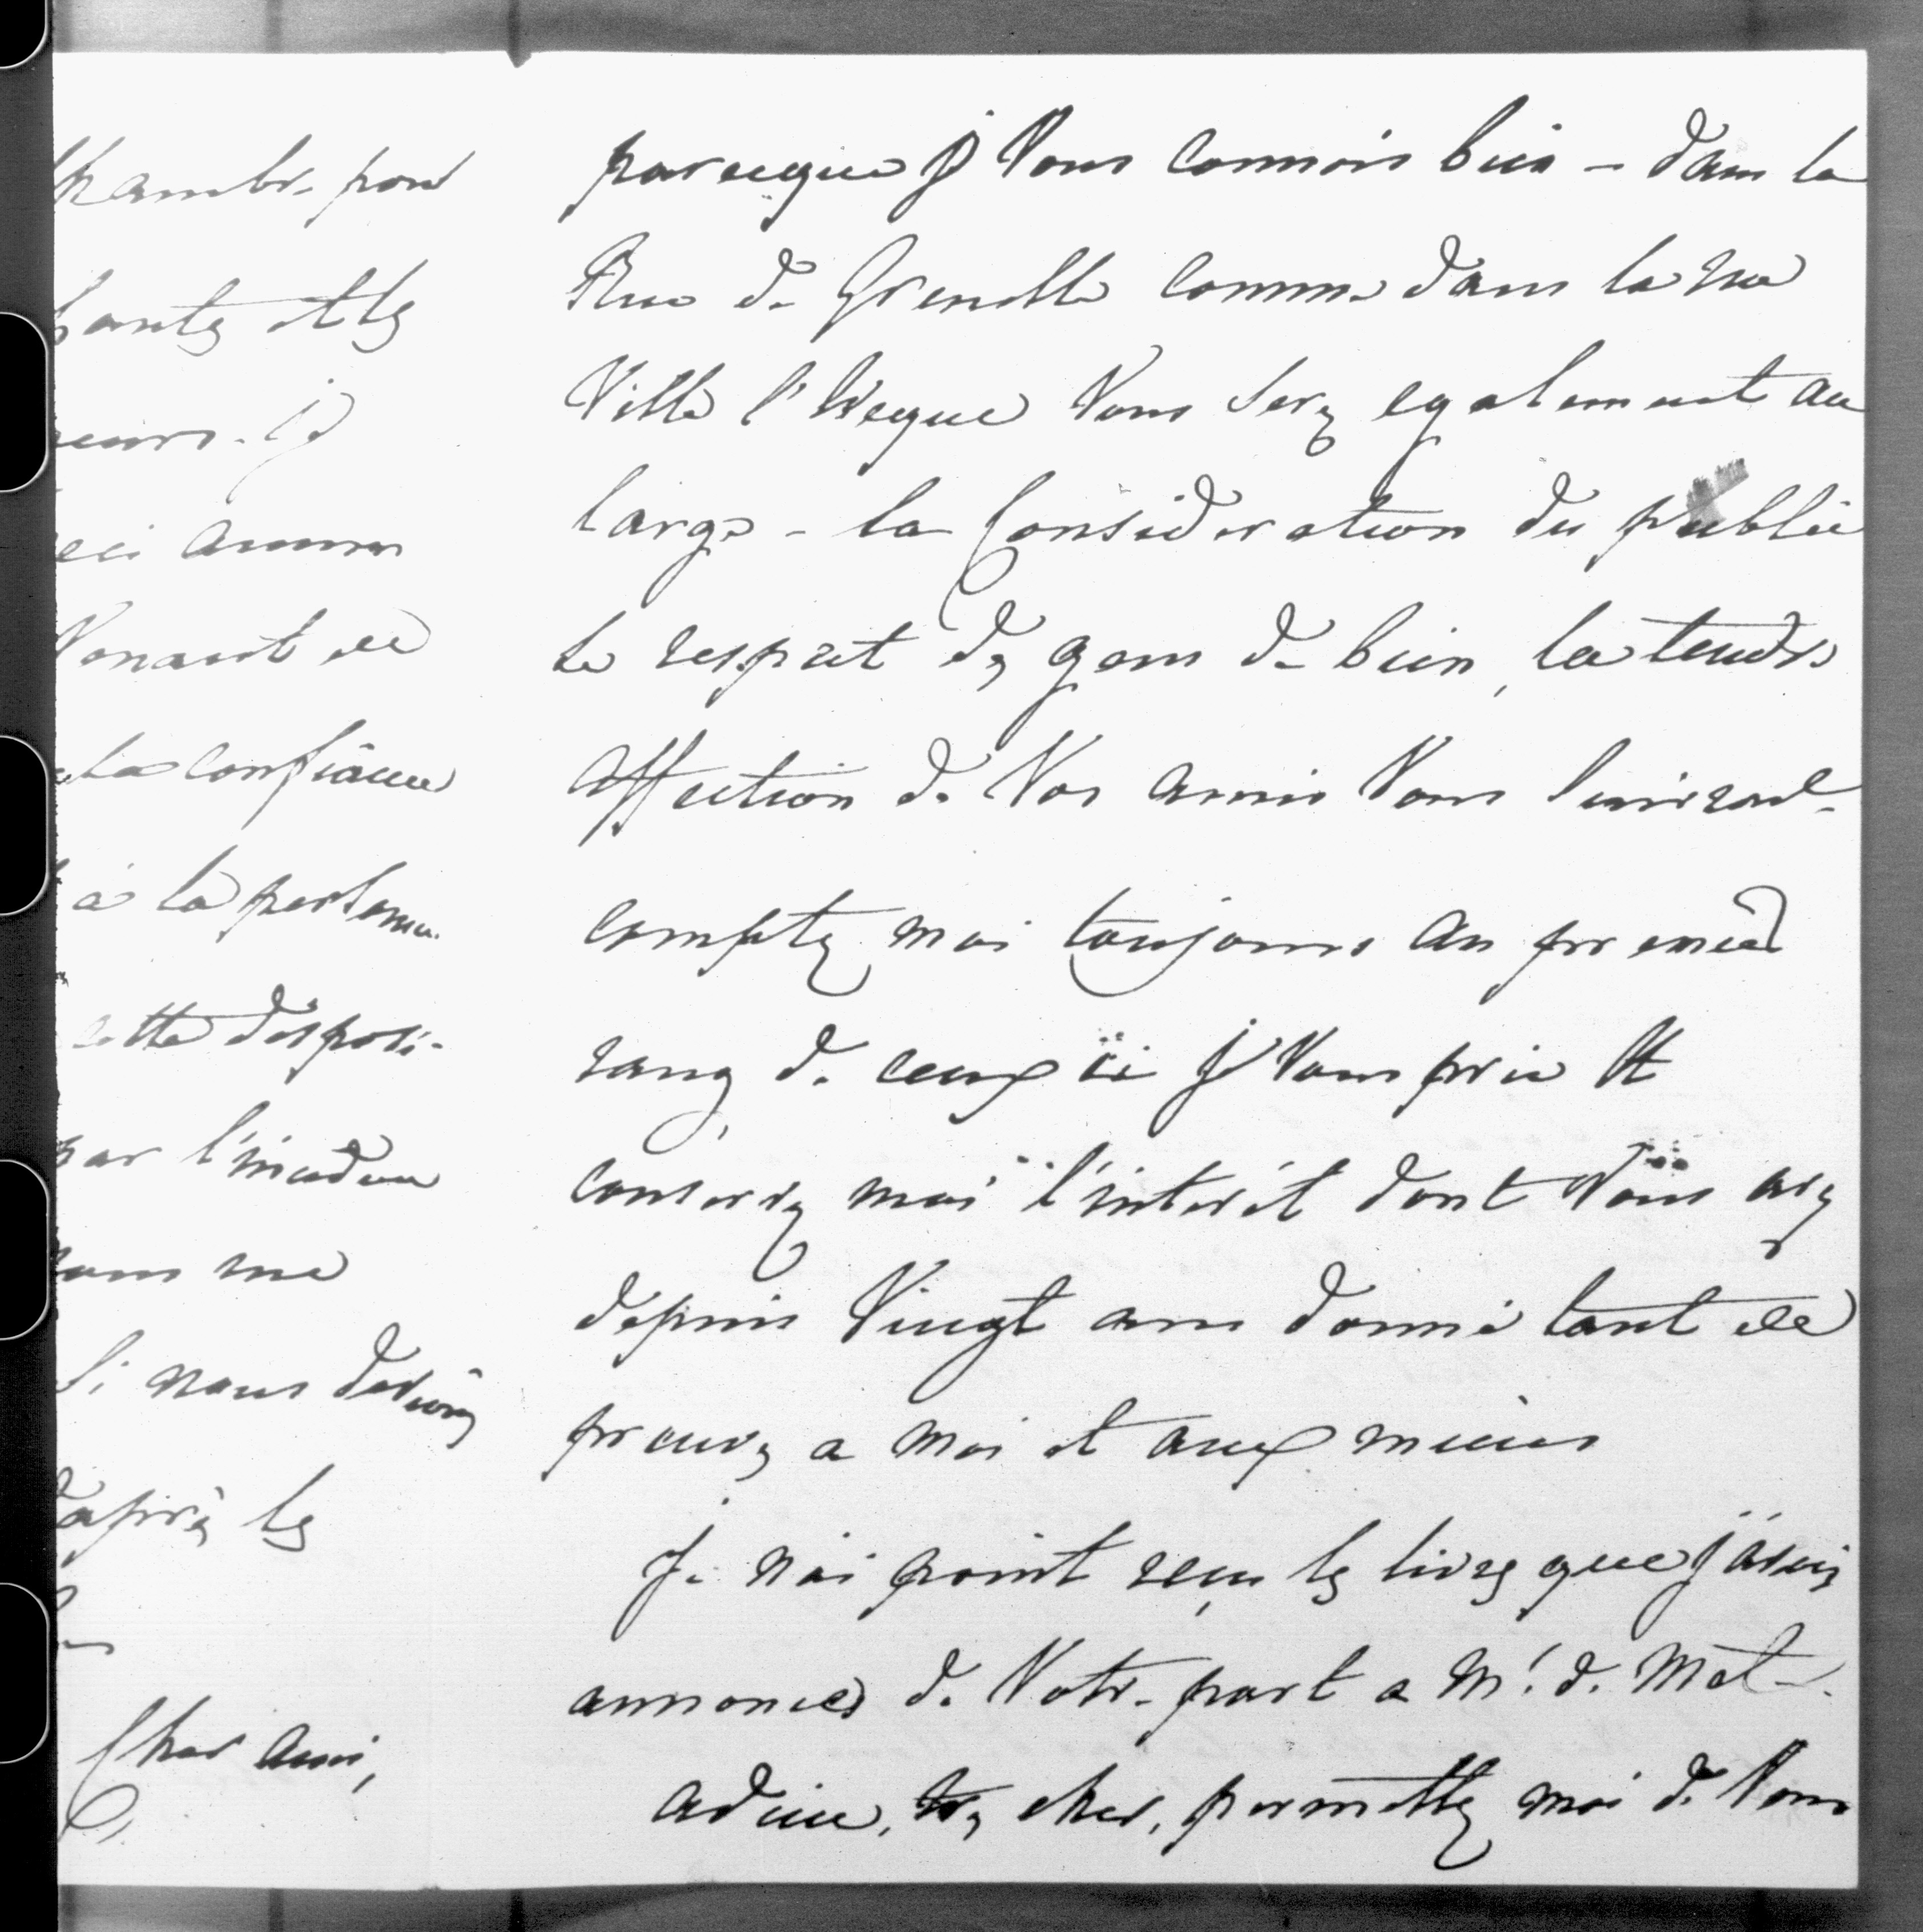 chambr. pour
et les
. je
ici
Venant de
la confiance
à la personn.
cette disposi-
par l'
me
si nous
d'après les
Cher ami,
parceque je Vous connois bien – dans la
Rue de Grenelle comme dans la rue
Ville l'Eveque Vous serez egalement au
large – la Consideration du public
le respect des gens de bien, la tendre
affection de Vos amis Vous suivront –
comptez moi toujours au premier
rang de ceux ci je Vous prie et
conservez moi l'interêt dont Vous avez
depuis Vingt ans donné tant de
preuves a moi et aux miens
Je n'ai point reçu les livres que j'avois
annoncés de Votre part a Mr. de Met–
adieu, très cher, permettez moi de Vous